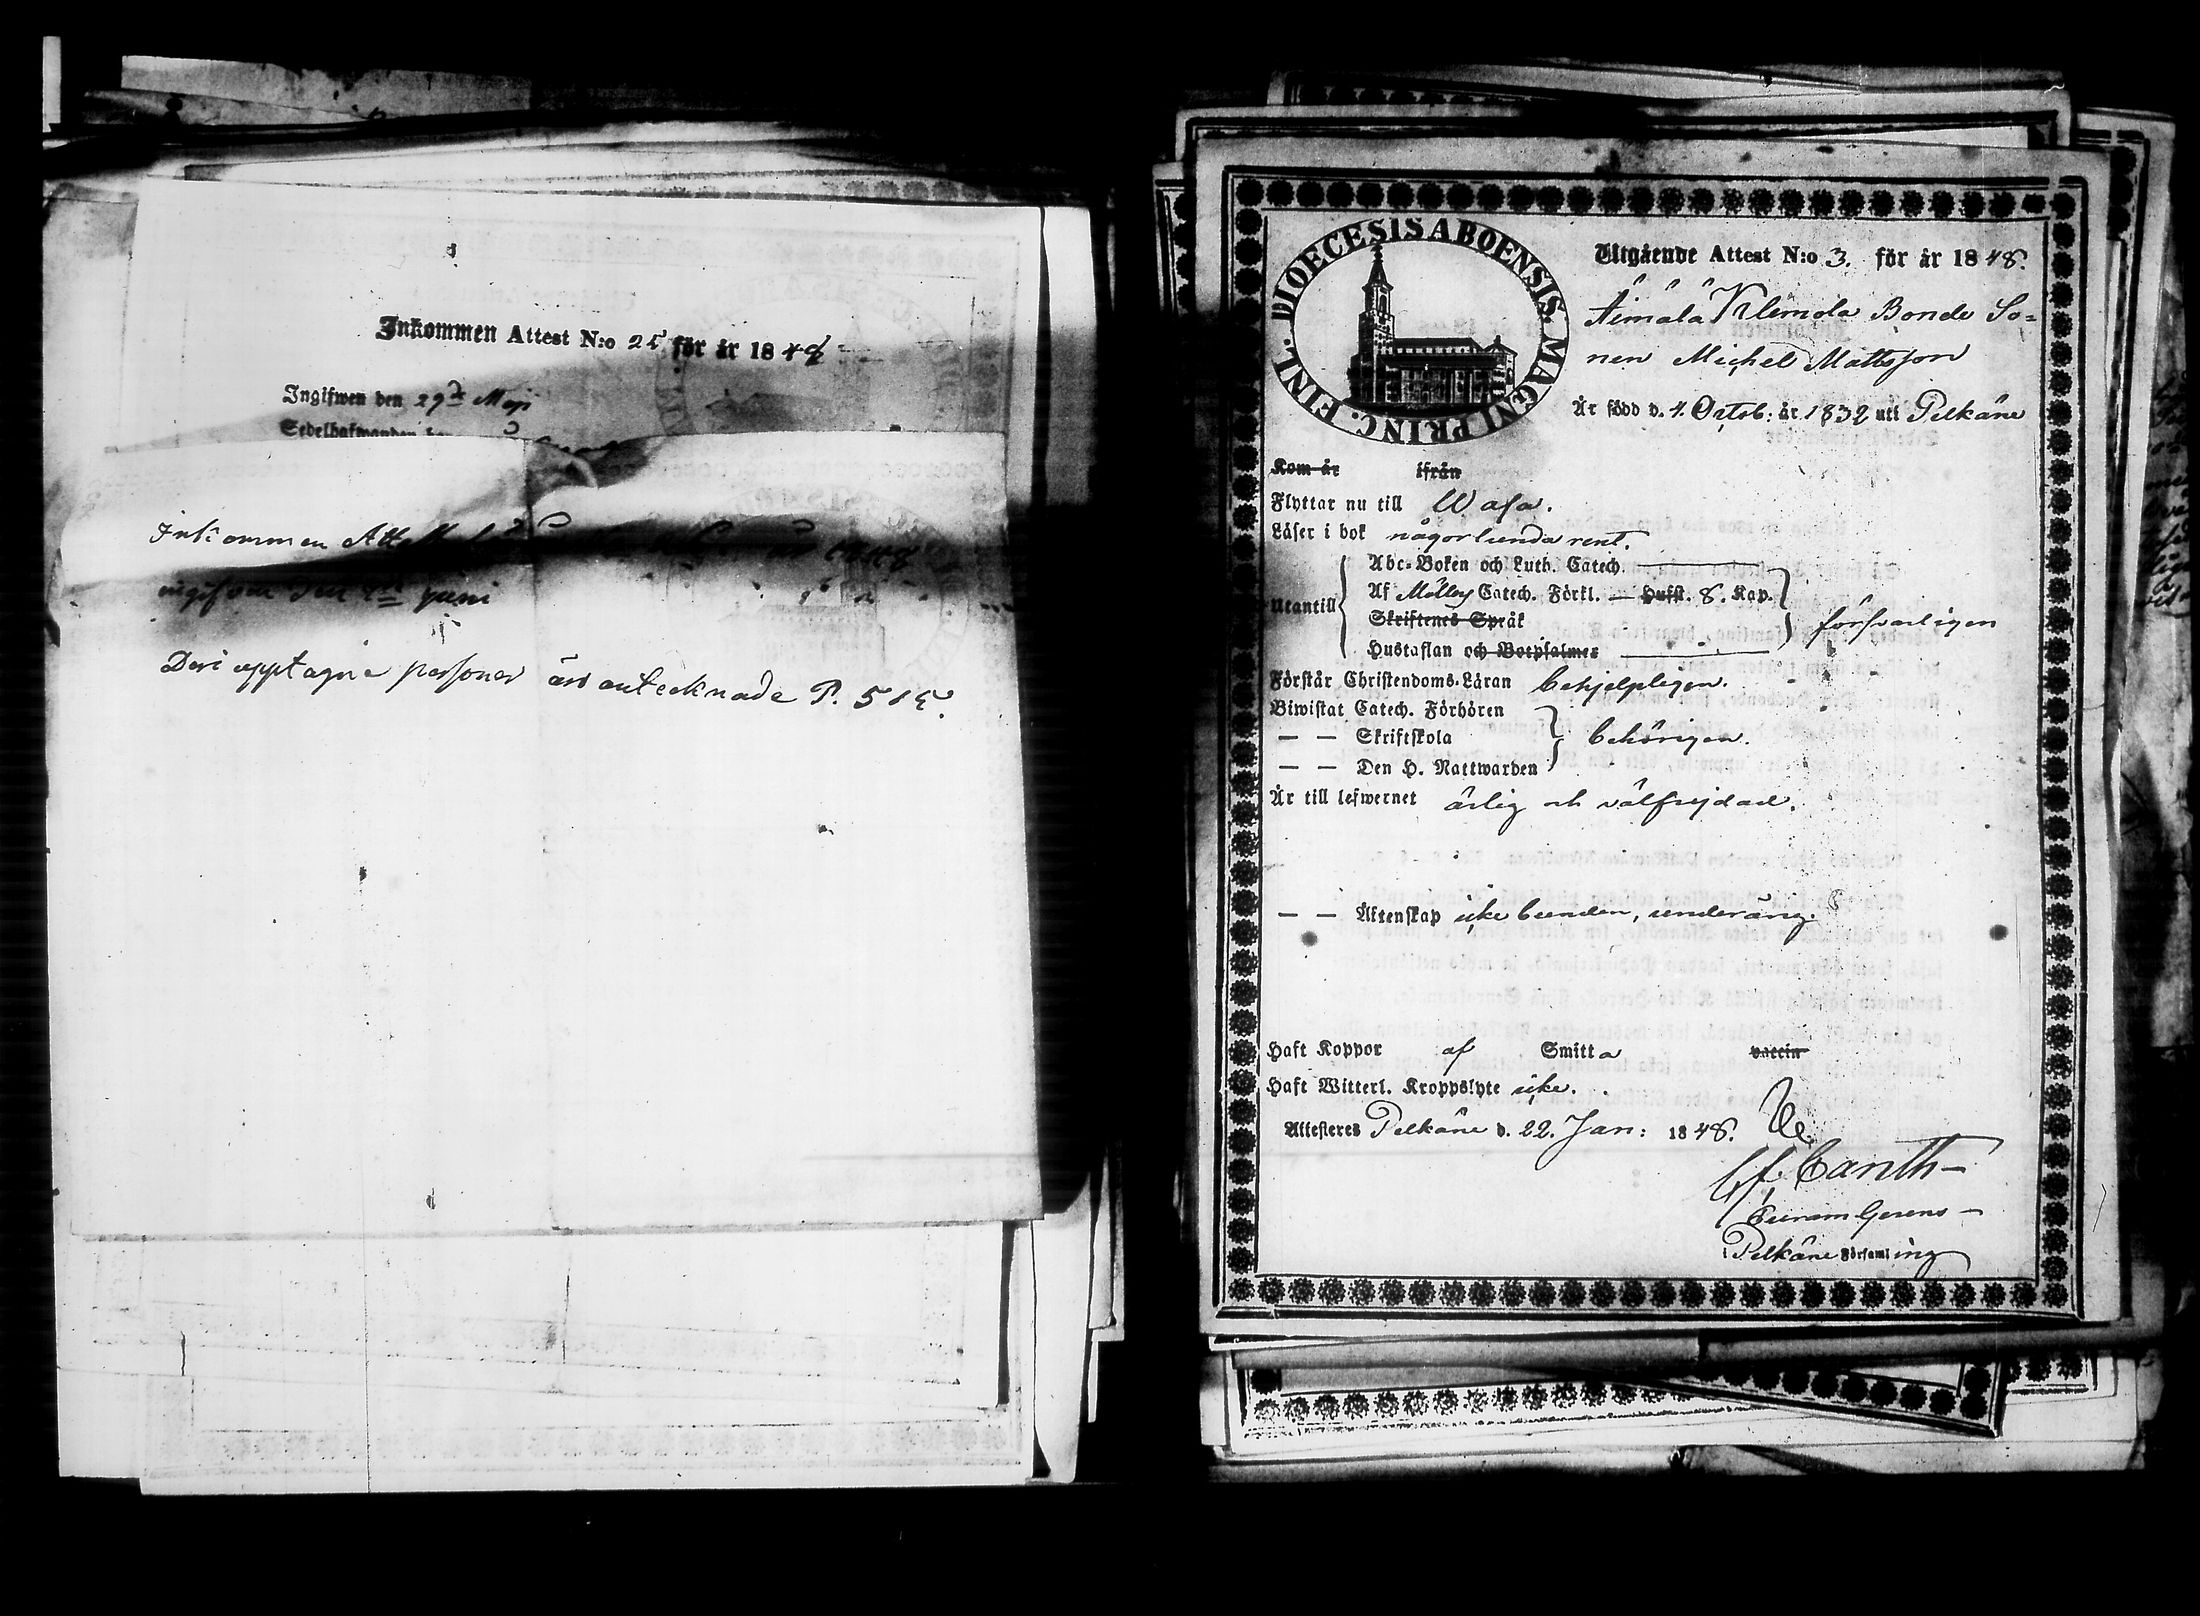 Inkommen Attest N:o 25 för år 1848
Ingifwen den 29de Maji
Sedelhafwanden
Inkommen Attest
ingifven den juni
Deri upptagne personer äro antecknade P. 515.
DIOECESIS ABOENSIS. MAGNI PRINC. FINL.
Utgående Attest N:o 3. för år 1848.
Äimälä Klemola Bonde So=
nen Michel Mattsson
Är född d. 4. Octob. år 1832 uti Pelkäne
Kom år ifrån
Flyttar nu till Wasa.
Läser i bok någorlunda rent.
Utantill
Abc-Boken och Luth. Catech.
Af Möllers Catech. Förkl. — Hufst. 8. Kap.
Skriftenes Språk
försvarligen
Hustaflan och Botpsalmer
Förstår Christendoms-Läran behjelpligen.
Biwistat Catech. Förhören
— — Skriftskola
behörigen.
— — Den H. Nattwarden
Är till lefwernet ärlig och välfrejdad.
— — Äktenskap icke bunden, underårig.
Haft Koppor af Smitta vaccin
Haft Witterl. Kroppslyte icke.
Attesteras Pelkäne d. 22. Jan: 1848.
Canth
Curam Gerens
i Pelkäne Församling